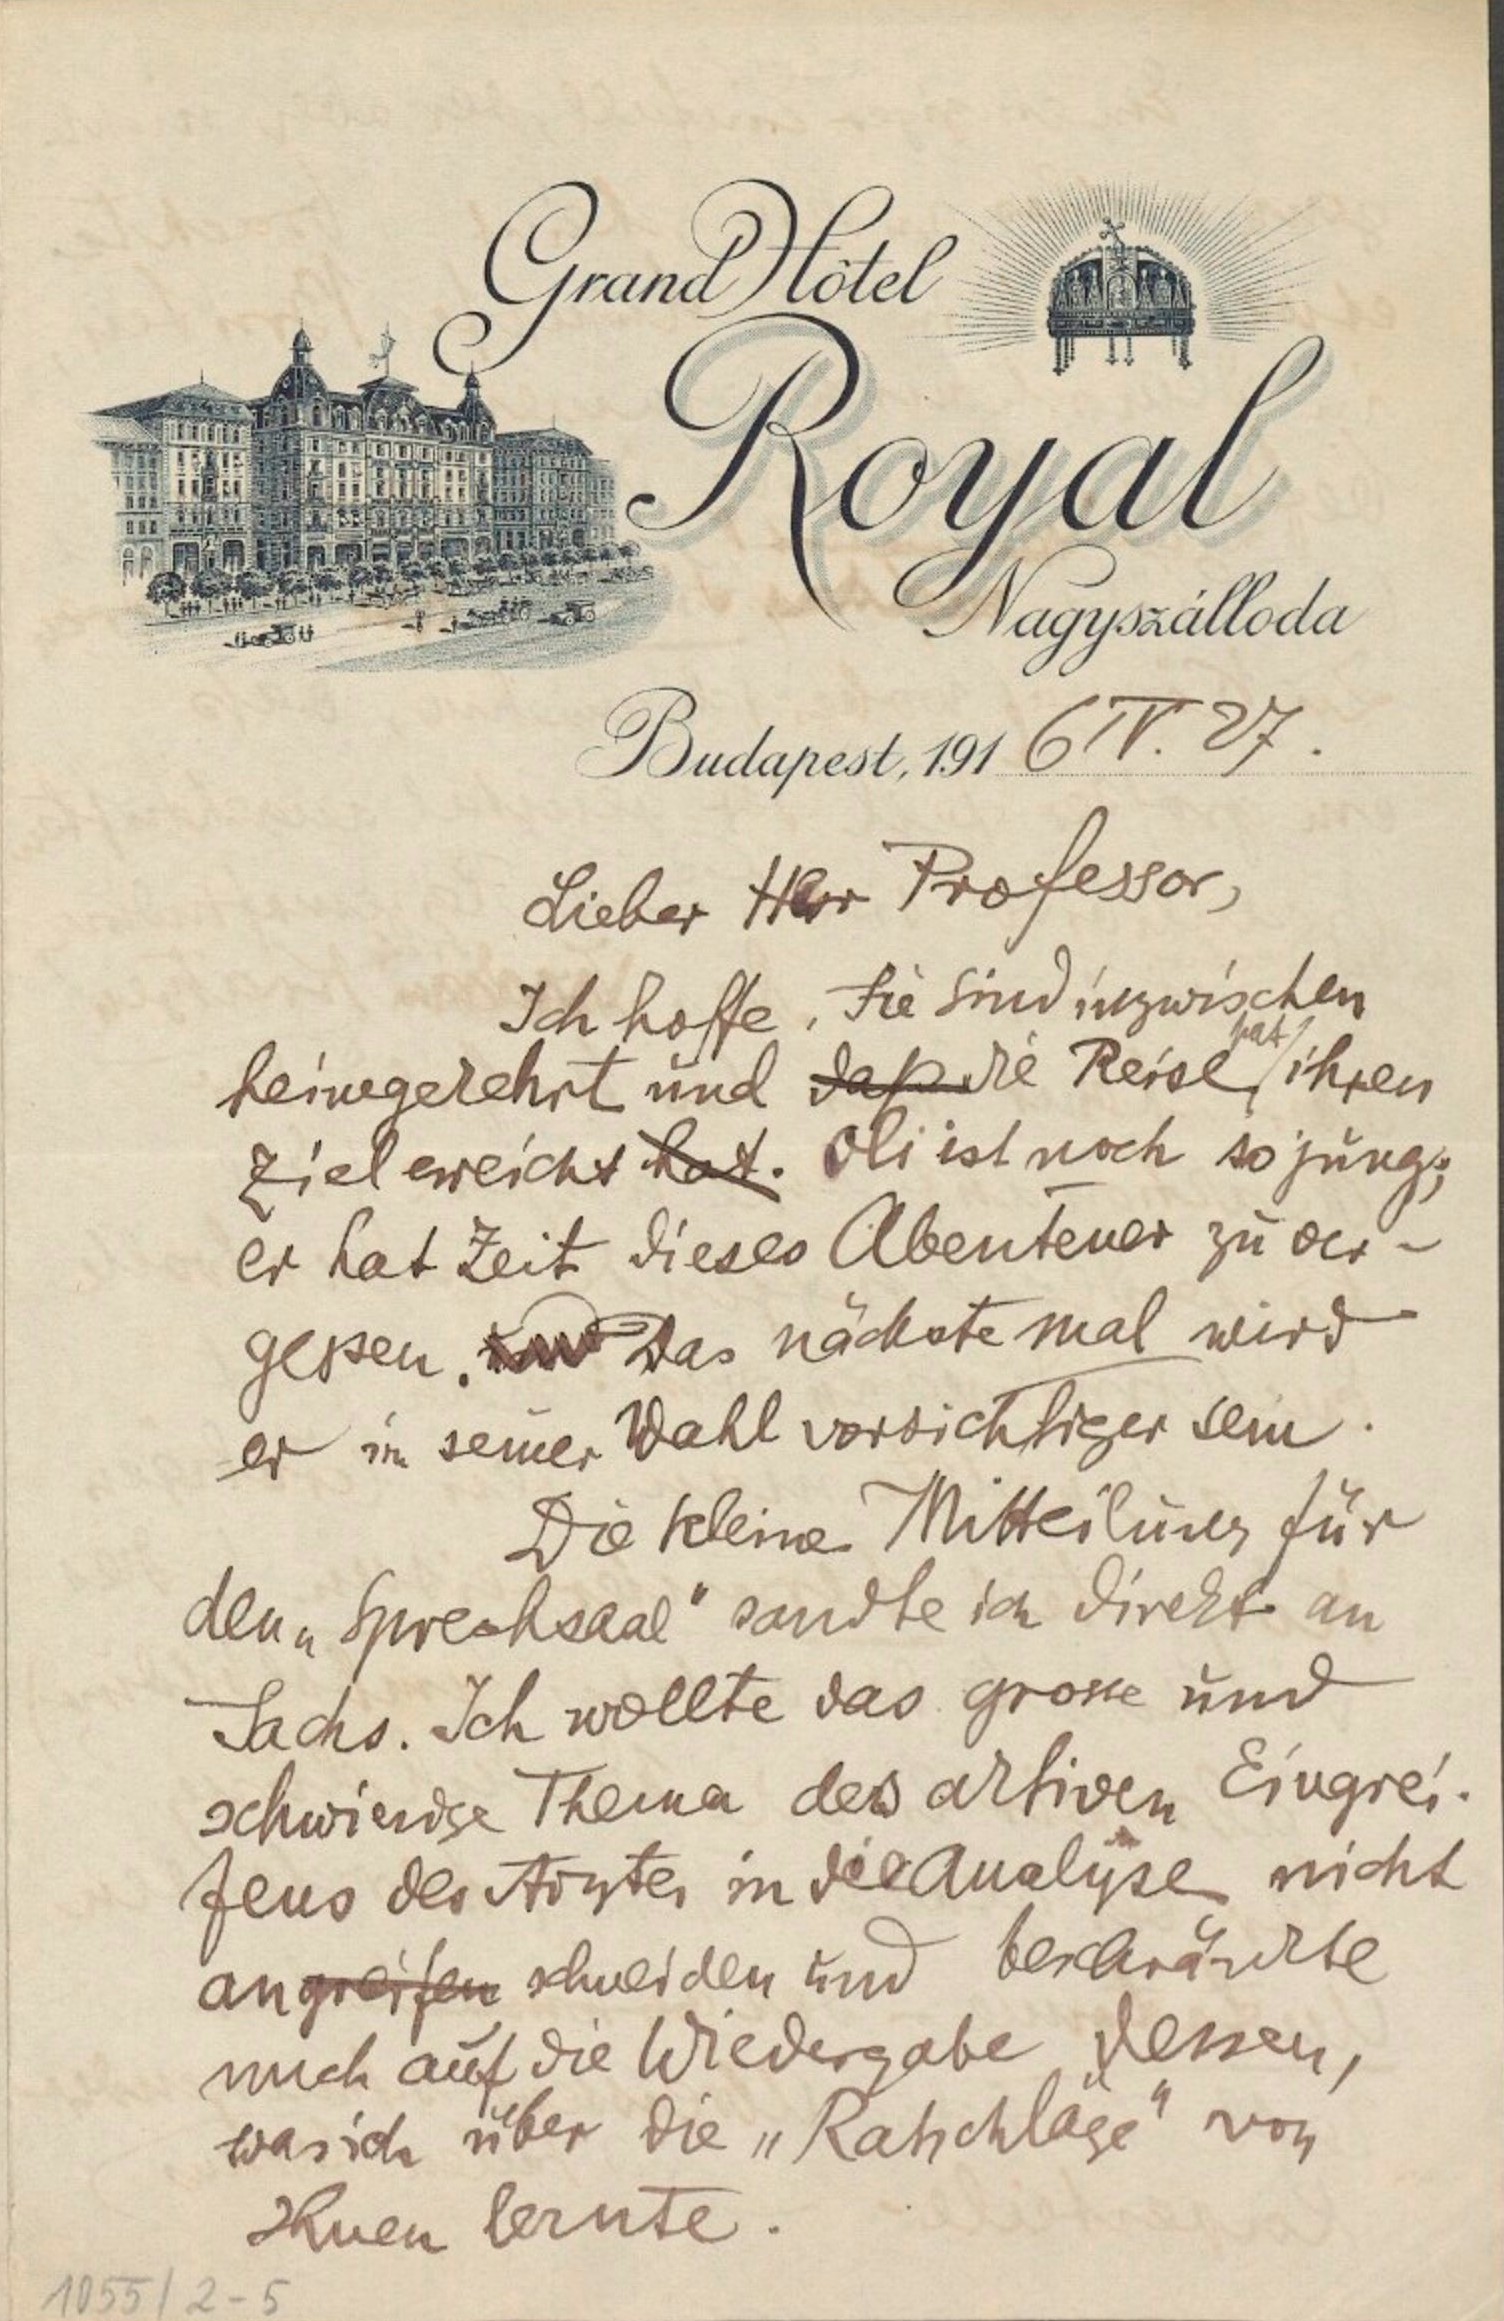 Grand Hôtel
Royal
Nagyszálloda
Budapest, 1916 IV. 27.
Lieber Herr Professor,
Ich hoffe, Sie sind inzwischen
heimgekehrt und daß die Reise hat ihren
Ziel erreicht hat. Oli ist noch so jung;
er hat Zeit dieses Abenteuer zu ver-
gessen. und Das nächste mal wird
er in seiner Wahl vorsichtiger sein.
Die kleine Mitteilung für
den „Sprechsaal" sandte ich direkt an
Sachs. Ich wollte das grosse und
schwierige Thema des aktiven Eingrei-
fens des Arztes in die Analyse nicht
angreifen schneiden und beschränkte
mich auf die Wiedergabe dessen,
was ich über die „Ratschläge" von
Ihnen lernte.
1055/2-5